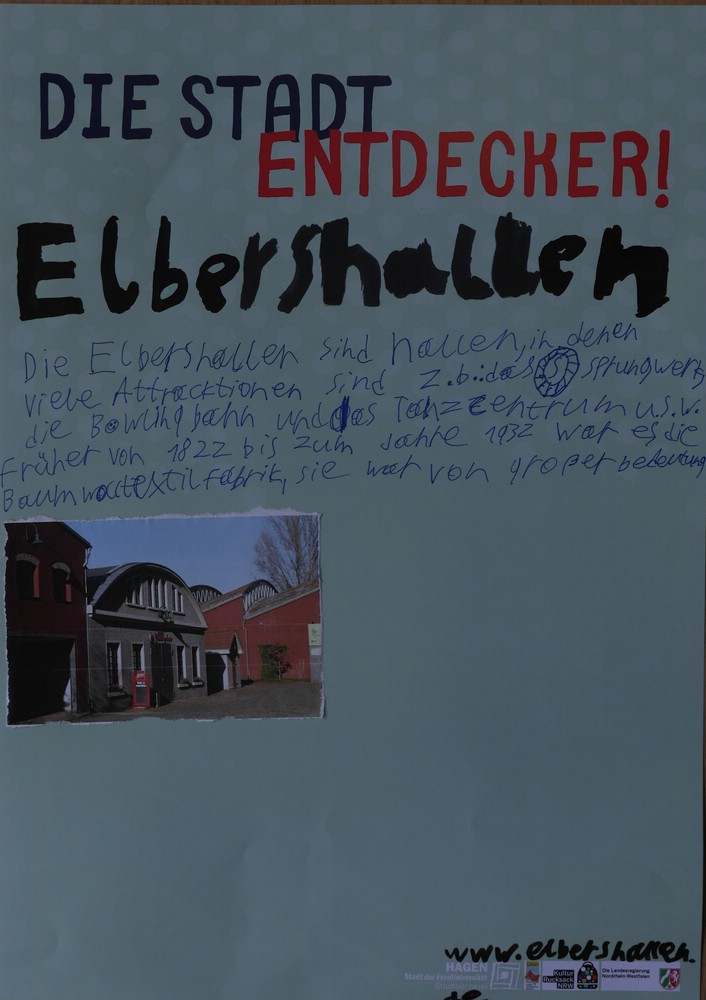 DIE STADT
ENTDECKER!
Elbershallen
Die Elbershallen sind hallen, in denen
viele Attracktionen sind z.b.: das sprungwerk
die Bowlingbahn und das Tanzcentrum u.s.w.
Früher von 1822 bis zum Jahre 1932 war es die
Baumwolltextilfabrik, sie war von großer bedeutung
www.elbershallen.
de
HAGEN
Stadt der FernUniversität
Kultur
Rucksack
NRW
Die Landesregierung
Nordrhein-Westfalen